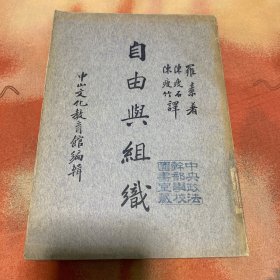 羅素著
陳瘦石
陳瘦竹
譯
自由與組織
中山文化教育館編輯
中央政法
幹部學校
圖書室藏